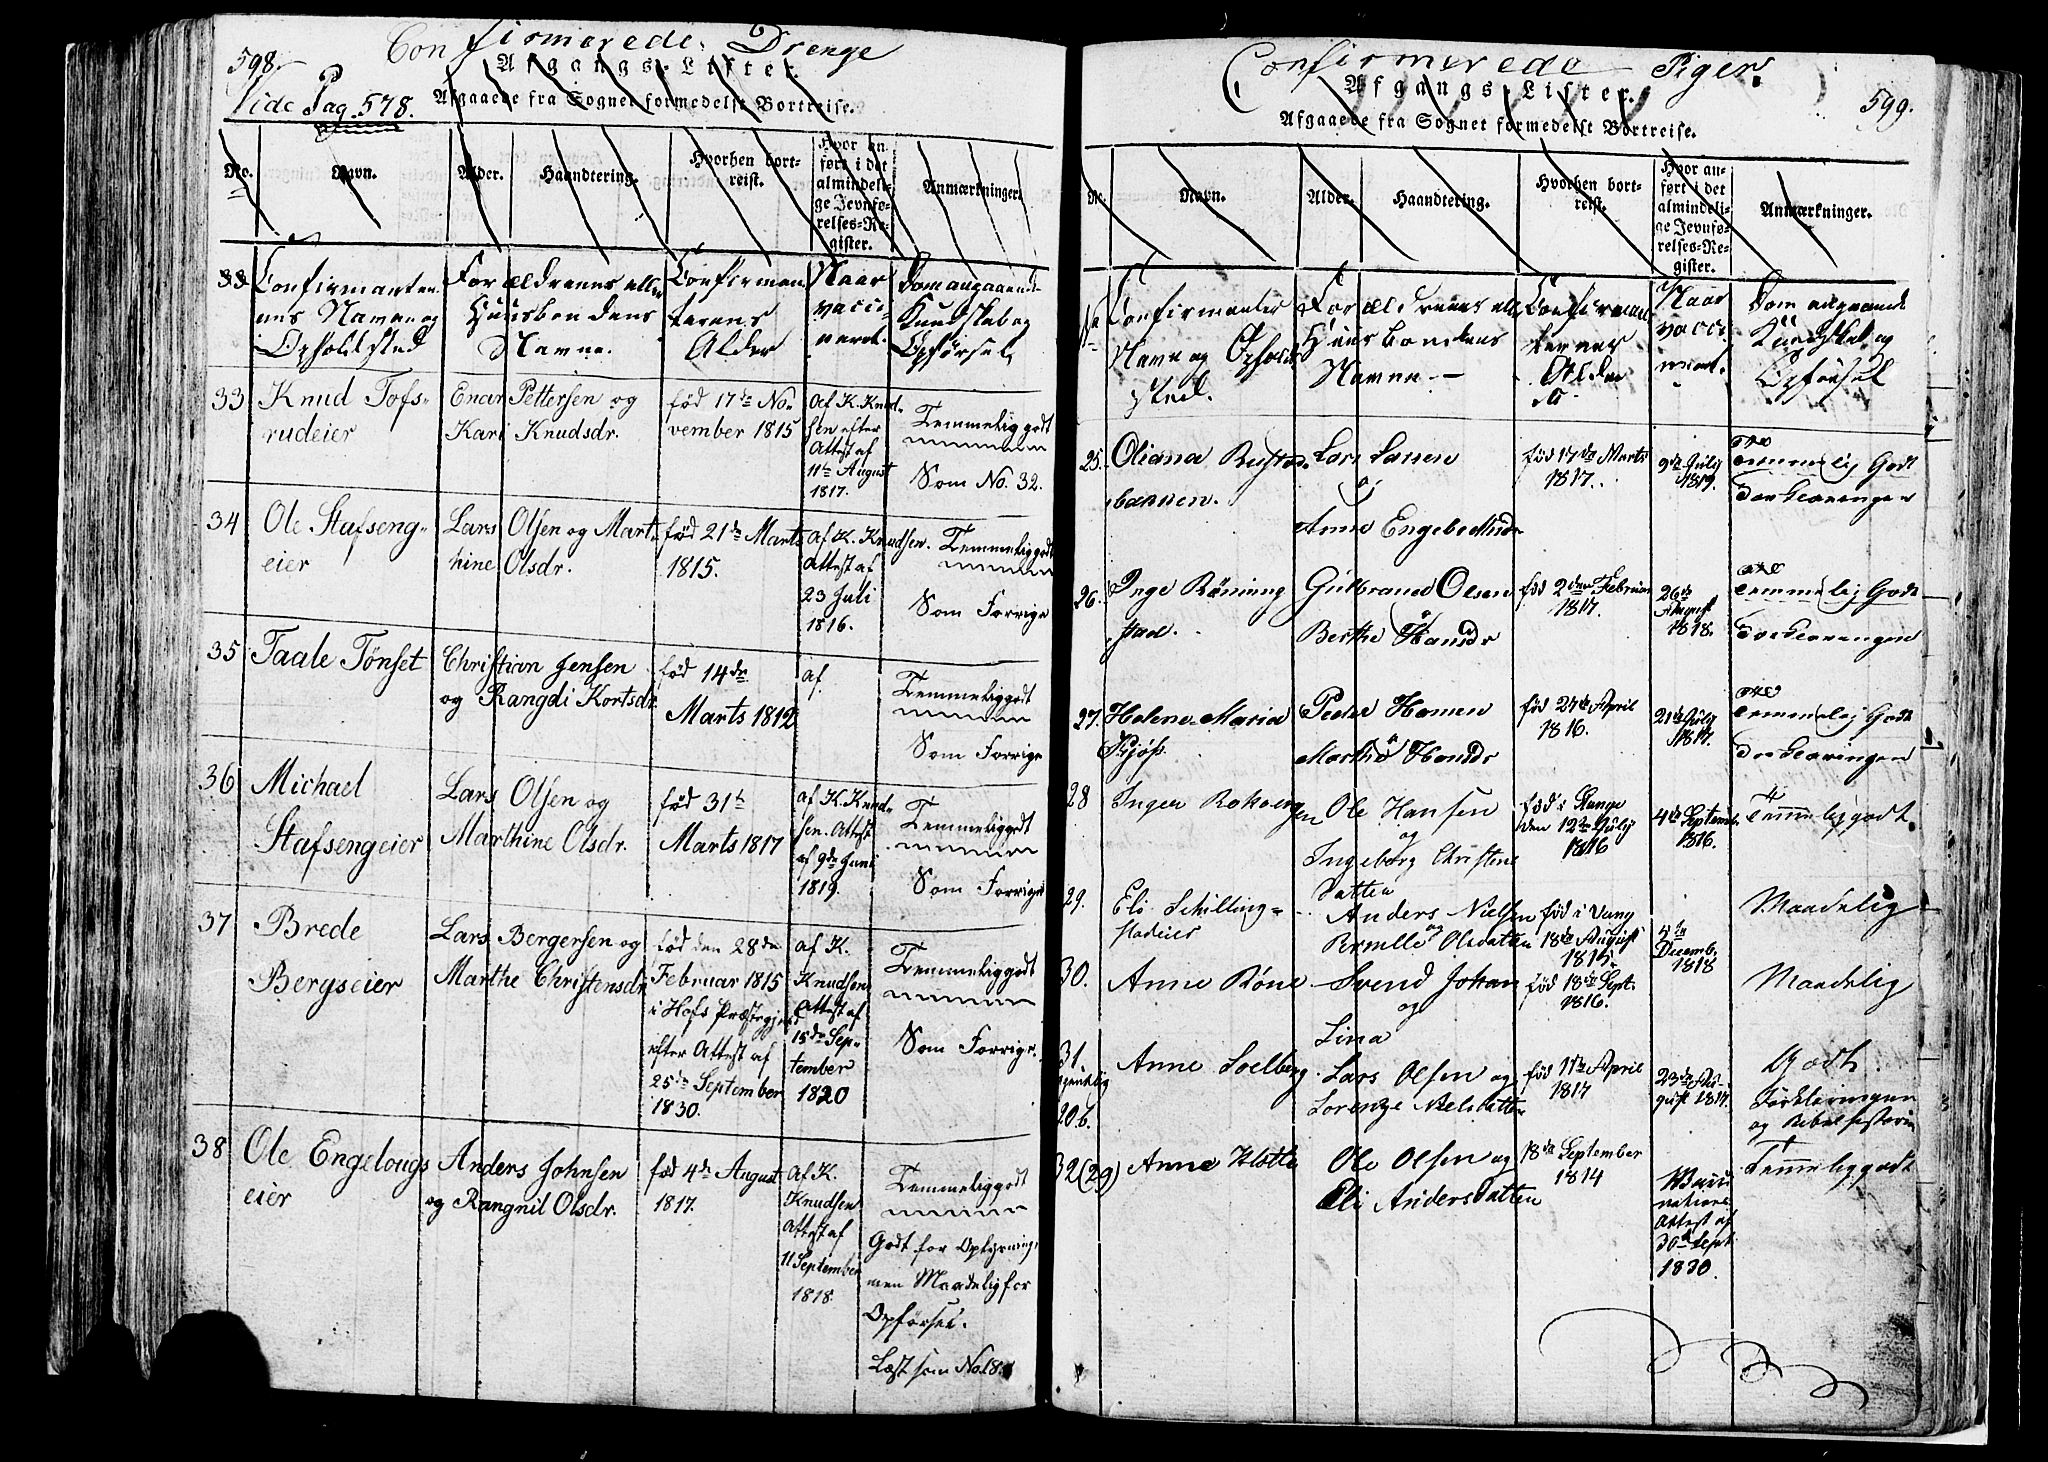 598.
Confirmerede Drenge
Afgangs-Lister.
Vide Pag. 578.
Afgaaede fra Sognet formedelst Bortreise.
No.
Navn.
Alder.
Haandtering.
Hvorhen bort-
reist.
Hvor an-
ført i det
almindeli-
ge Jevnfø-
relses-Re-
gister.
Anmærkninger.
Confirmanter-
nes Navne og
Opholdsted
Forældrenes eller
Huusbondens
Navne.
Confirman-
ternes
Alder
Naar
vacci-
neret.
Dom angaaende
Kundskab og
Opførsel
33
Knud Tofs-
rudeier
Enar Pettersen og
Kari Knudsdr.
fød 17de No-
vember 1815
Af K. Knud-
sen efter
Attest af
11te August
1817.
Temmelig godt
Som No. 32.
34
Ole Stafseng-
eier
Lars Olsen og Mart-
hine Olsdr.
fød 21de Marts
1815.
af K. Knudsen.
Attest af
23 Juli
1816.
Temmelig godt
Som Forrige
35
Taale Tønset
Christian Jensen
og Rangdi Kortsdr.
fød 14de
Marts 1812
af
Temmelig godt
Som Forrige
36
Michael
Stafsengeier
Lars Olsen og
Marthine Olsdr.
fød 31te
Marts 1817
af K. Knud-
sen. Attest
af 9de Juni
1819.
Temmelig godt
Som Forrige
37
Brede
Bergseier
Lars Bergersen og
Marthe Christensdr
fød den 28de
Februar 1815
i Hofs Præstegjeld
efter Attest af
25de September
1830.
af K.
Knudsen
Attest af
15de Sep-
tember
1820
Temmelig godt
Som Forrige.
38
Ole Engelougs
eier
Anders Johnsen
og Rangnil Olsdr.
fød 4de August
1817.
Af K.
Knudsen
Attest af
11 September
1818.
Temmelig godt
Godt for Oplysning,
men Maadelig for
Opførsel.
Læst som No. 18.
Confirmerede Piger.
599.
Afgangs-Lister.
Afgaaede fra Sognet formedelst Bortreise.
No.
Navn.
Alder.
Haandtering.
Hvorhen bort-
reist.
Hvor an-
ført i det
almindeli-
ge Jevnfø-
relses-Re-
gister.
Anmærkninger.
No
Confirmanternes
Navne og Ophold-
sted.
Forældrenes ell
Huusbondens
Navne
Confirman-
ternes
Alder
Naar
vacci-
neret.
Dom angaaende
Kundskab og
Opførsel
25.
Oliana Rustad-
bakken.
Lars Larsen
og
Anne Engebretsdr
fød 17de Marts
1817.
9de July
1819.
Temmelig Godt
Forklaringen
26.
Inge Rønning-
stad.
Gulbrand Olsen
og
Berthe Hansdr
fød 2den Februar
1817.
26de
August
1818.
Temmelig Godt
Forklaringen
27.
Helene Maria
Peder Hansen
og
Marthe Hansdr
fød 27de April
1816.
21de July
1817.
Temmelig Godt
Forklaringen
28
Inger Rokbergen
Ole Hansen
og
Ingeborg Christens
Datter
fød i Stange
den 12te July
1816
4de Septemb.
1816.
Temmelig godt.
29.
Eli Schilling-
stadeier
Anders Nielsen
og
Pernille Olsdatter
fød i Vang
18de August
1815.
4de
Decemb.
1818
Maadelig
30.
Anne Røne
Svend Johan
og
Lina
fød 18de Sept.
1816.
Maadelig
31.
20 b.
Anne Soelberg
Lars Olsen og
Lorentze Nielsdatter
fød 11te April
1817
23de Au-
gust 1817.
Godt.
Forklaringen
og Bibelhistorie
32 (29)
Anne Klotte
Ole Olsen og
Eli Andersdatter
18de September
1814
Vacci-
nations
Attest af
30te Sept.
1830.
Temmelig godt